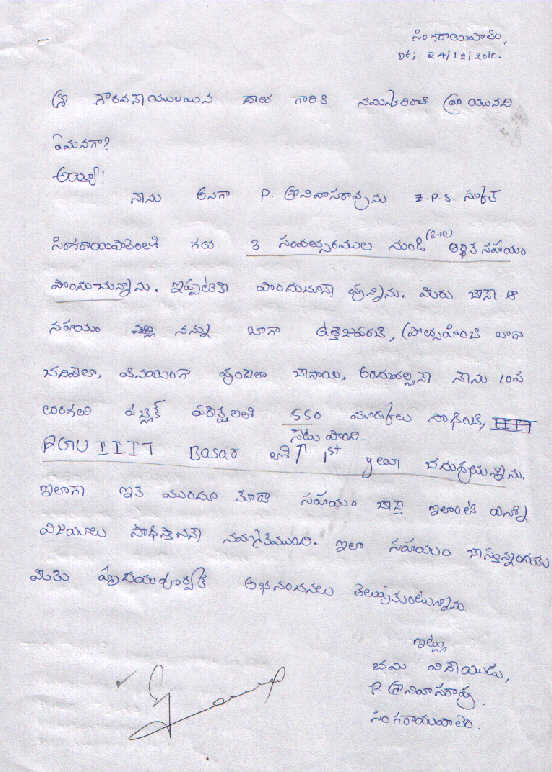 సింగరాయపాలెం,
Dt; 24/12/2010.
శ్రీ గౌరవనీయులయిన దాత గారికి నమస్కరించి వ్రాయునది
ఏమనగా?
అయ్యా!
నేను అనగా P. శ్రీనివాసరావును Z.P.S. స్కూల్
సింగరాయపాలెంలో గత 3 సంవత్సరముల నుండి (8-10) ఆర్థిక సహాయం
పొందుచున్నాను. ఇప్పటికీ పొందుతూనే వున్నాను. మీరు చేసే ఆ
సహాయం వల్ల నన్ను బాగా ఉత్తేజపరచి, ప్రోత్సహించి బాగా
చదివేలా, వినయంగా వుండేలా చేసాయి. అందువల్లనే నేను 10వ
తరగతి పబ్లిక్ పరీక్షలలో 550 మార్కులు సాధించి,
RGU IIIT Basar లో సీటు పొంది 1st year చదువుతున్నాను.
ఇలాగే ఇక ముందు కూడా సహాయం చేస్తే ఇలాంటి ఎన్నో
విజయాలు సాధిస్తానని నమ్మకముంది. ఇలా సహాయం చేస్తున్నందుకు
మీకు హృదయపూర్వక అభినందనలు తెలుపుకుంటున్నాను
ఇట్లు
తమ విధేయుడు,
P. శ్రీనివాసరావు.
సింగరాయపాలెం.